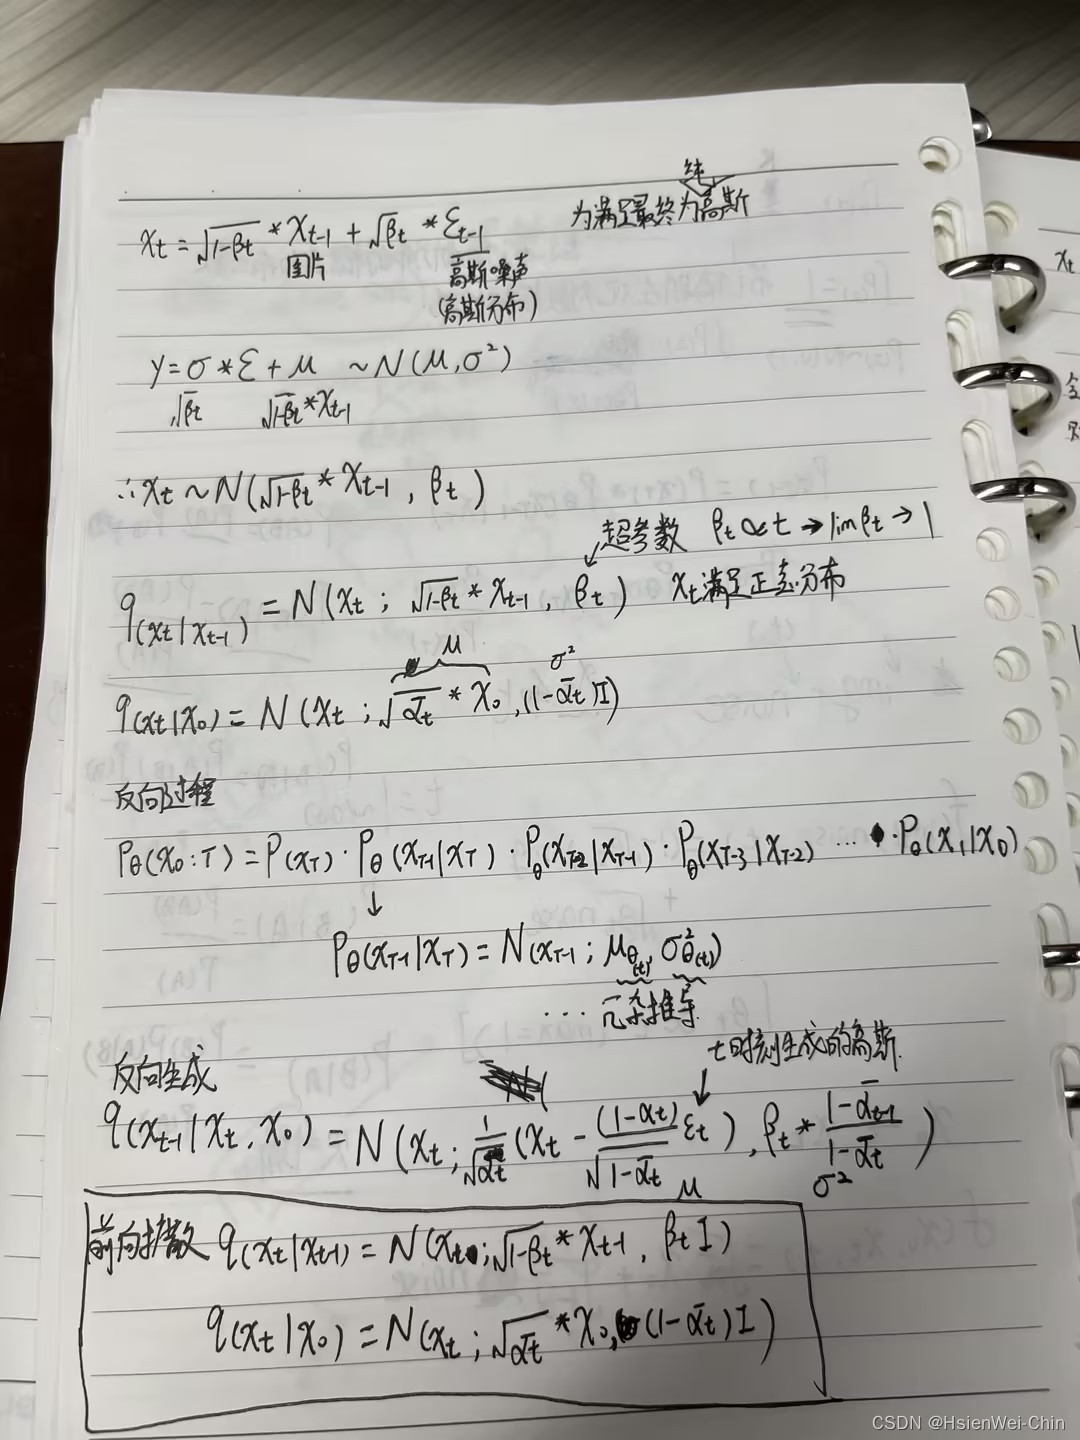 纯
为满足最终为高斯
xt = √(1-βt) * xt-1 + √βt * εt-1
图片 高斯噪声
(高斯分布)
y = σ * ε + μ ~ N(μ, σ²)
√βt √(1-βt) * xt-1
∴ xt ~ N(√(1-βt) * xt-1, βt)
超参数 βt ∝ t → lim βt → 1
q(xt|xt-1) = N(xt; √(1-βt) * xt-1, βt) xt满足正态分布
μ σ²
q(xt|x0) = N(xt; √ᾱt * x0, (1-ᾱt)I)
反向过程
Pθ(x0:T) = P(xT) · Pθ(xT-1|xT) · Pθ(xT-2|xT-1) · Pθ(xT-3|xT-2) ... · Pθ(x1|x0)
↓
Pθ(xT-1|xT) = N(xT-1; μθ(t), σ²θ(t))
... 冗杂推导
t时刻生成的高斯.
反向生成
q(xt-1|xt, x0) = N(xt; 1/√αt (xt - (1-αt)/√(1-ᾱt) εt), βt * (1-ᾱt-1)/(1-ᾱt))
μ σ²
前向扩散 q(xt|xt-1) = N(xt; √(1-βt) * xt-1, βt I)
q(xt|x0) = N(xt; √ᾱt * x0, (1-ᾱt)I)
xt
CSDN @HsienWei-Chin